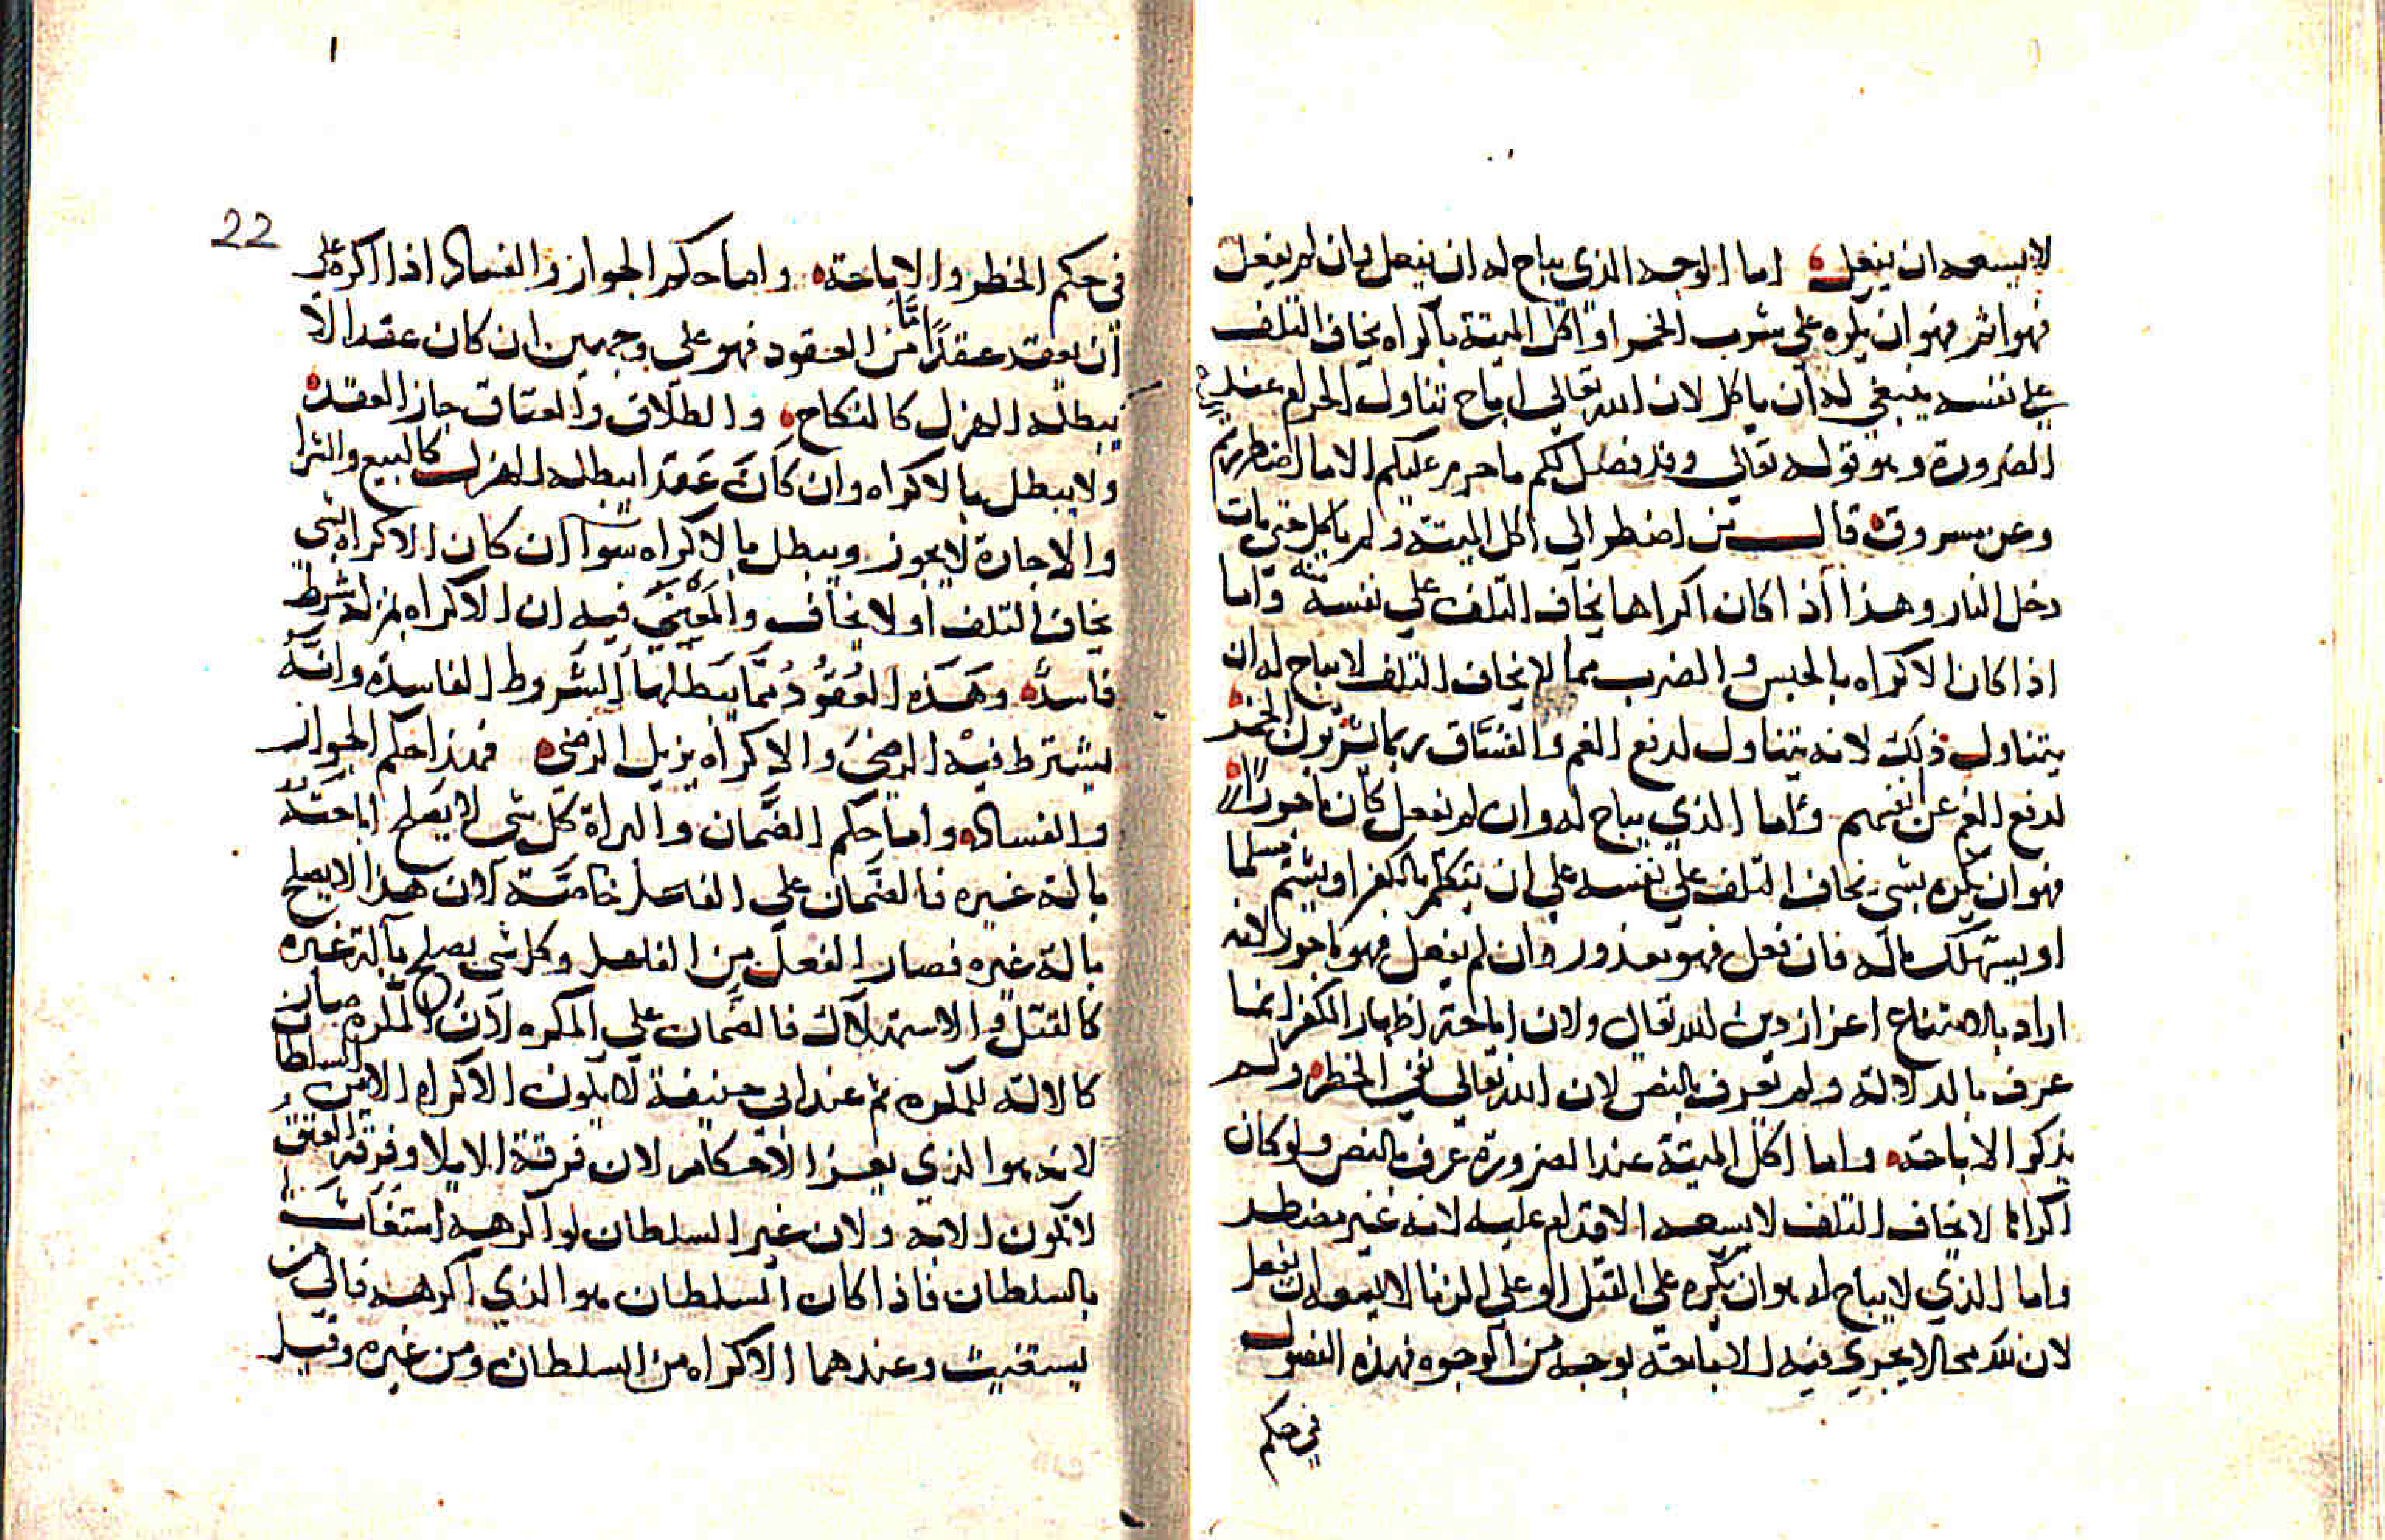 لا يسعه ان يفعل ه اما الوجه الذي يباح له ان يفعل وان لم يفعل
فهو اثم فهو ان يكره على شرب الخمر او اكل الميتة باكراه يخاف التلف
على نفسه ينبغي له ان ياكل لان الله تعالى اباح تناول الحرام عند
الضرورة وهو قوله تعالى وقد فصل لكم ما حرم عليكم الا ما اضطررتم
وعن مسروق ه قال من اضطر الى اكل الميتة ولم ياكل حتى مات
دخل النار وهذا اذا كان اكراها يخاف التلف على نفسه منه واما
اذا كان الاكراه بالحبس والضرب مما لا يخاف التلف لا يباح له ان
يتناول ذلك لانه يتناول لدفع الغم والفسّاق ربما يشربون الخمر
لدفع الغم عن انفسهم واما الذي يباح له وان لم يفعل كان ماجورا ه
فهو ان يكره بشي يخاف التلف على نفسه على ان يتكلم بالكفر او يشتم مسلما
او يستهلك ماله فان فعل فهو معذور وان لم يفعل فهو ماجور لانه
اراد بالامتناع اعزاز دين الله تعالى ولان اباحة اظهار الكفر انما
عرف بالدلالة ولم تعرف بالنص لان الله تعالى نفى الخطر ه ولم
يذكر الاباحة ه واما اكل الميتة عند الضرورة عرف بالنص ولو كان
اكراها لا يخاف التلف لا يسعه الاقدام عليه لانه غير مضطر
واما الذي لا يباح له هو ان يكره على القتل او على الزنا لا يسعه ان يفعل
لان ذلك محالا يجري فيه الاباحة بوجه من الوجوه فهذه الفصول
في حكم
22
في حكم الخطر والاباحة ه واما حكم الجواز والفساد اذا اكره على
ان يعقد عقدًا من العقود فهو على وجهين ان كان عقدا لا
يبطله الهزل كالنكاح ه والطلاق والعتاق جاز العقد ه
ولا يبطل بالاكراه وان كَانَ عَقدا يبطله الهزل كالبيع والشرا
والاجارة لا يجوز ويبطل بالاكراه سوآ ان كان الاكراه بشي
يخاف التلف او لا يخاف والمعنى فيه ان الاكراه بمنزلة شرط
فاسد ه وهَذه العُقُودُ ممّا يبطلها الشروط الفاسدة وانّه
يشترط فيه الرضى والاكراه يزيل الرضى ه فهذا حكم الجواز
والفساد ه واما حكم الضّمان والبراة كل شي لا يصلح اباحتة
بالة غيره فالضّمان على الفاعل خاصّة لان هذا لا يصلح
بالة غيره فصار الفعل من الفاعل وكل شي يصلح بآلة غيره
كالقتل والاستهلاك فالضّمان على المكره لان المكره صار
كالالة للمكره ثم عند ابي حنيفة لا يكون الاكراه الا من السلطان
لانه هو الذي يعز الاحكام لان فرقة الايلا وفرقة العنق
لا تكون الا به ولان غير السلطان لو اكرهه استغاث
بالسلطان فاذا كان السلطان هو الذي اكرهه فالى من
يستغيث وعندهما الاكراه من السلطان ومن غيره وقيل